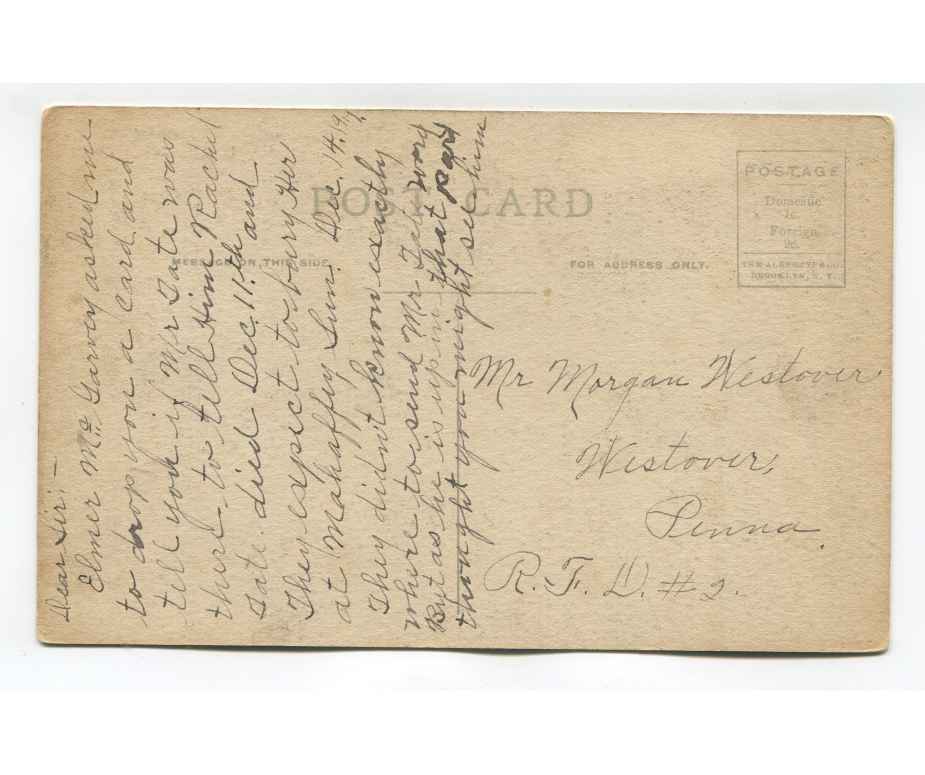 POST CARD
MESSAGE ON THIS SIDE
FOR ADDRESS ONLY.
POSTAGE
Domestic
1c
Foreign
2c
THE ALBERTYPE CO.
BROOKLYN, N.Y.
Dear Sir:-
Elmer Mc Garvey asked me
to drop you a card and
tell you if Mr Tate was
there to tell Him Rachel
Tate died Dec. 11th and
They expect to bury Her
at Mahaffey Sun. Dec. 14. 19
They didn't know exactly
where to send Mr Tate word
But as he is up in that part
thought you might see him
Mr Morgan Westover
Westover,
Penna.
R. F. D. #2.